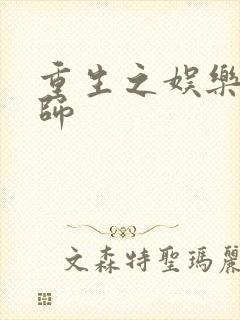 重生之娛樂
師
文森特聖瑪麗